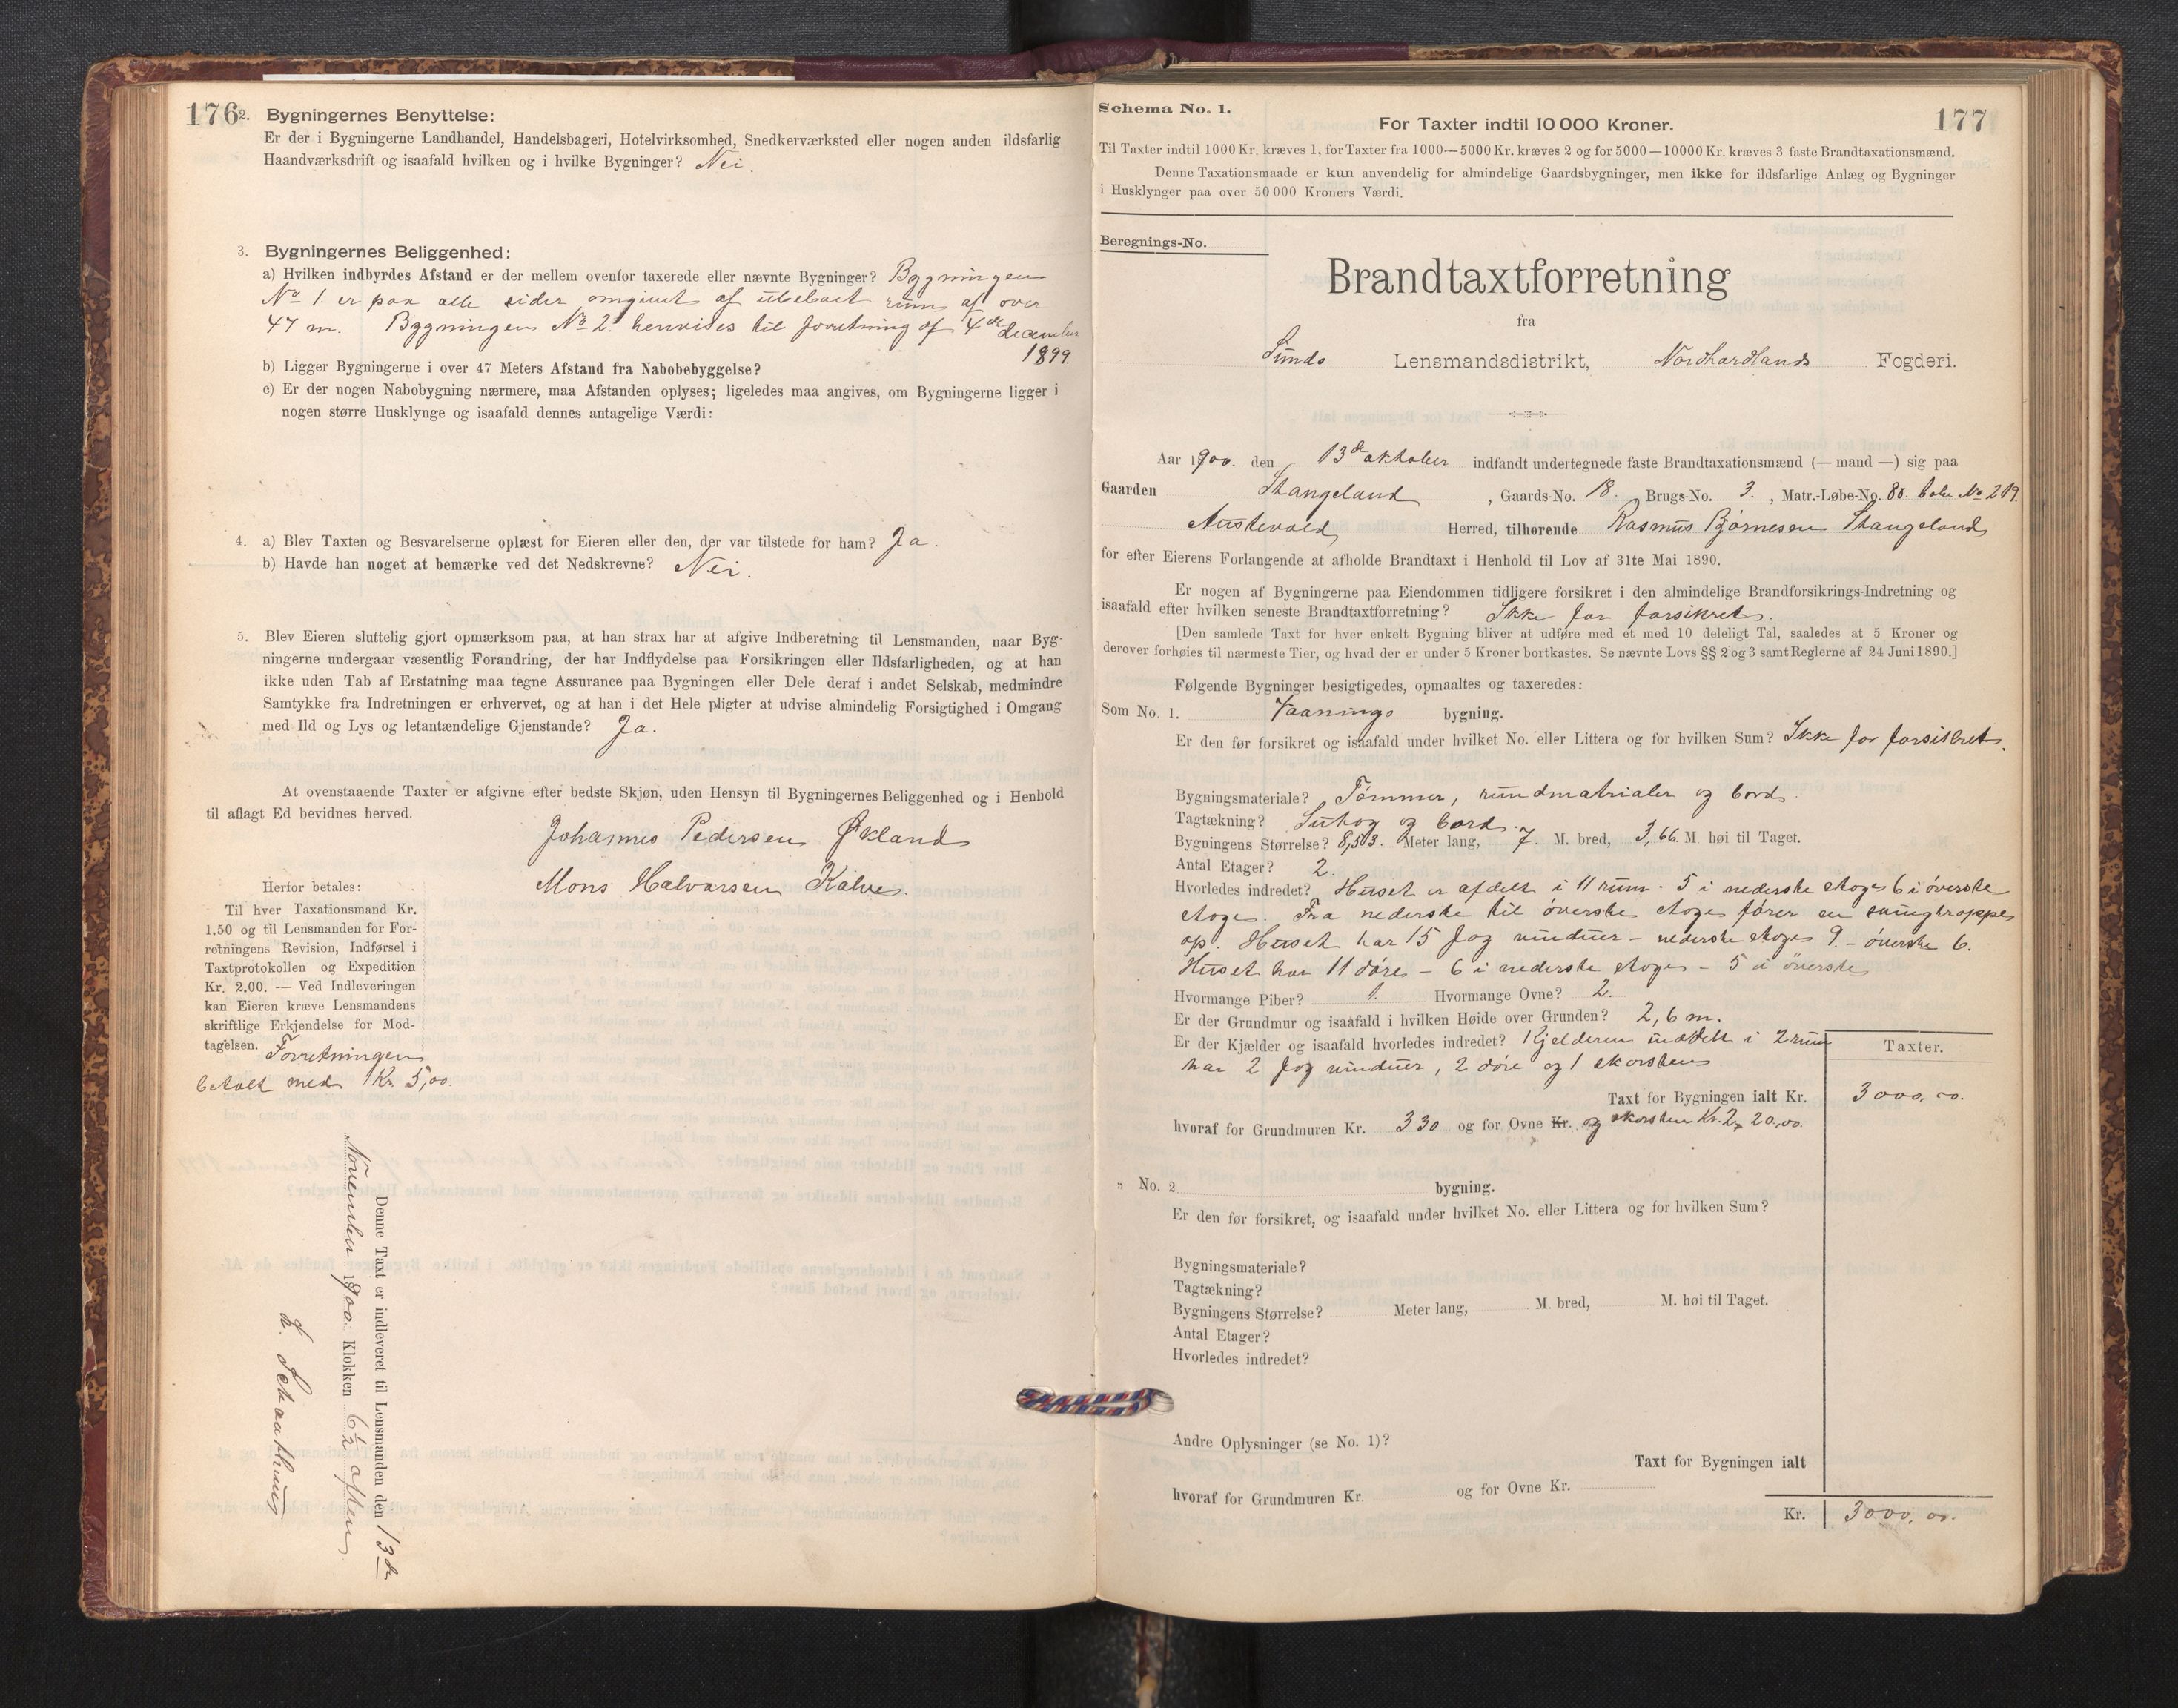 176
2. Bygningernes Benyttelse:
Er der i Bygningerne Landhandel, Handelsbageri, Hotelvirksomhed, Snedkerværksted eller nogen anden ildsfarlig
Haandværksdrift og isaafald hvilken og i hvilke Bygninger? Nei.
3. Bygningernes Beliggenhed:
a) Hvilken indbyrdes Afstand er der mellem ovenfor taxerede eller nævnte Bygninger? Bygningen
No 1. er paa alle sider omgivet af ubebaet rum af over
47 m. Bygningen No 2. henvises til forretning af 4de december
1899.
b) Ligger Bygningerne i over 47 Meters Afstand fra Nabobebyggelse?
c) Er der nogen Nabobygning nærmere, maa Afstanden oplyses; ligeledes maa angives, om Bygningerne ligger i
nogen større Husklynge og isaafald dennes antagelige Værdi:
4. a) Blev Taxten og Besvarelserne oplæst for Eieren eller den, der var tilstede for ham? Ja.
b) Havde han noget at bemærke ved det Nedskrevne? Nei.
5. Blev Eieren sluttelig gjort opmærksom paa, at han strax har at afgive Indberetning til Lensmanden, naar Byg-
ningerne undergaar væsentlig Forandring, der har Indflydelse paa Forsikringen eller Ildsfarligheden, og at han
ikke uden Tab af Erstatning maa tegne Assurance paa Bygningen eller Dele deraf i andet Selskab, medmindre
Samtykke fra Indretningen er erhvervet, og at han i det Hele pligter at udvise almindelig Forsigtighed i Omgang
med Ild og Lys og letantændelige Gjenstande? Ja.
At ovenstaaende Taxter er afgivne efter bedste Skjøn, uden Hensyn til Bygningernes Beliggenhed og i Henhold
til aflagt Ed bevidnes herved.
Johannes Pedersen Økland
Mons Halvorsen Kalve.
Herfor betales:
Til hver Taxationsmand Kr.
1.50 og til Lensmanden for For-
retningens Revision, Indførsel i
Taxtprotokollen og Expedition
Kr. 2.00. — Ved Indleveringen
kan Eieren kræve Lensmandens
skriftlige Erkjendelse for Mod-
tagelsen. Forretningen
betalt med Kr. 5,00.
Denne Taxt er indleveret til Lensmanden den 13de
November 1900. Klokken 6½ aften
177
Schema No. 1.
For Taxter indtil 10 000 Kroner.
Til Taxter indtil 1000 Kr. kræves 1, for Taxter fra 1000—5000 Kr. kræves 2 og for 5000—10000 Kr. kræves 3 faste Brandtaxationsmænd.
Denne Taxationsmaade er kun anvendelig for almindelige Gaardsbygninger, men ikke for ildsfarlige Anlæg og Bygninger
i Husklynger paa over 50 000 Kroners Værdi.
Beregnings-No.
Brandtaxtforretning
fra
Sunds Lensmandsdistrikt, Nordhordlands Fogderi.
Aar 1900. den 13de oktober indfandt undertegnede faste Brandtaxationsmænd (— mand —) sig paa
Gaarden Stangeland, Gaards-No. 18. Brugs-No. 3., Matr.-Løbe-No. 88. No 219.
Austevold Herred, tilhørende Rasmus Bjørnesen Stangeland
for efter Eierens Forlangende at afholde Brandtaxt i Henhold til Lov af 31te Mai 1890.
Er nogen af Bygningerne paa Eiendommen tidligere forsikret i den almindelige Brandforsikrings-Indretning og
isaafald efter hvilken seneste Brandtaxtforretning? Ikke før forsikret.
[Den samlede Taxt for hver enkelt Bygning bliver at udføre med et med 10 deleligt Tal, saaledes at 5 Kroner og
derover forhøies til nærmeste Tier, og hvad der er under 5 Kroner bortkastes. Se nævnte Lovs §§ 2 og 3 samt Reglerne af 24 Juni 1890.]
Følgende Bygninger besigtigedes, opmaaltes og taxeredes:
Som No. 1. Vaanings bygning.
Er den før forsikret og isaafald under hvilket No. eller Littera og for hvilken Sum? Ikke før forsikret.
Bygningsmateriale? Tømmer, rundmatrialer og bord.
Tagtækning? og bord.
Bygningens Størrelse? 8,53. Meter lang, 7. M. bred, 3,66 M. høi til Taget.
Antal Etager? 2.
Hvorledes indredet? Huset er afdelt i 11 rum. 5 i nederste etage 6 i øverste
etage. Fra nederste til øverste etage fører en svingtrappe
op. Huset har 15 fag vinduer – nederste etage 9. – øverste 6.
Huset har 11 døre – 6 i nederste etage – 5 i øverste
Hvormange Piber? 1. Hvormange Ovne? 2.
Er der Grundmur og isaafald i hvilken Høide over Grunden? 2,6 m.
Er der Kjælder og isaafald hvorledes indredet? Kjelderen inddelt i 2 rum
har 2 fag vinduer, 2 døre og 1 skorsten
Taxter.
Taxt for Bygningen ialt Kr. 3000,00.
hvoraf for Grundmuren Kr. 330 og for Ovne Kr. og skorsten Kr. 220,00.
" No. 2 bygning.
Er den før forsikret, og isaafald under hvilket No. eller Littera og for hvilken Sum?
Bygningsmateriale?
Tagtækning?
Bygningens Størrelse? Meter lang, M. bred, M. høi til Taget.
Antal Etager?
Hvorledes indredet?
Andre Oplysninger (se No. 1)?
Taxt for Bygningen ialt
hvoraf for Grundmuren Kr. og for Ovne Kr.
Kr. 3000,00.